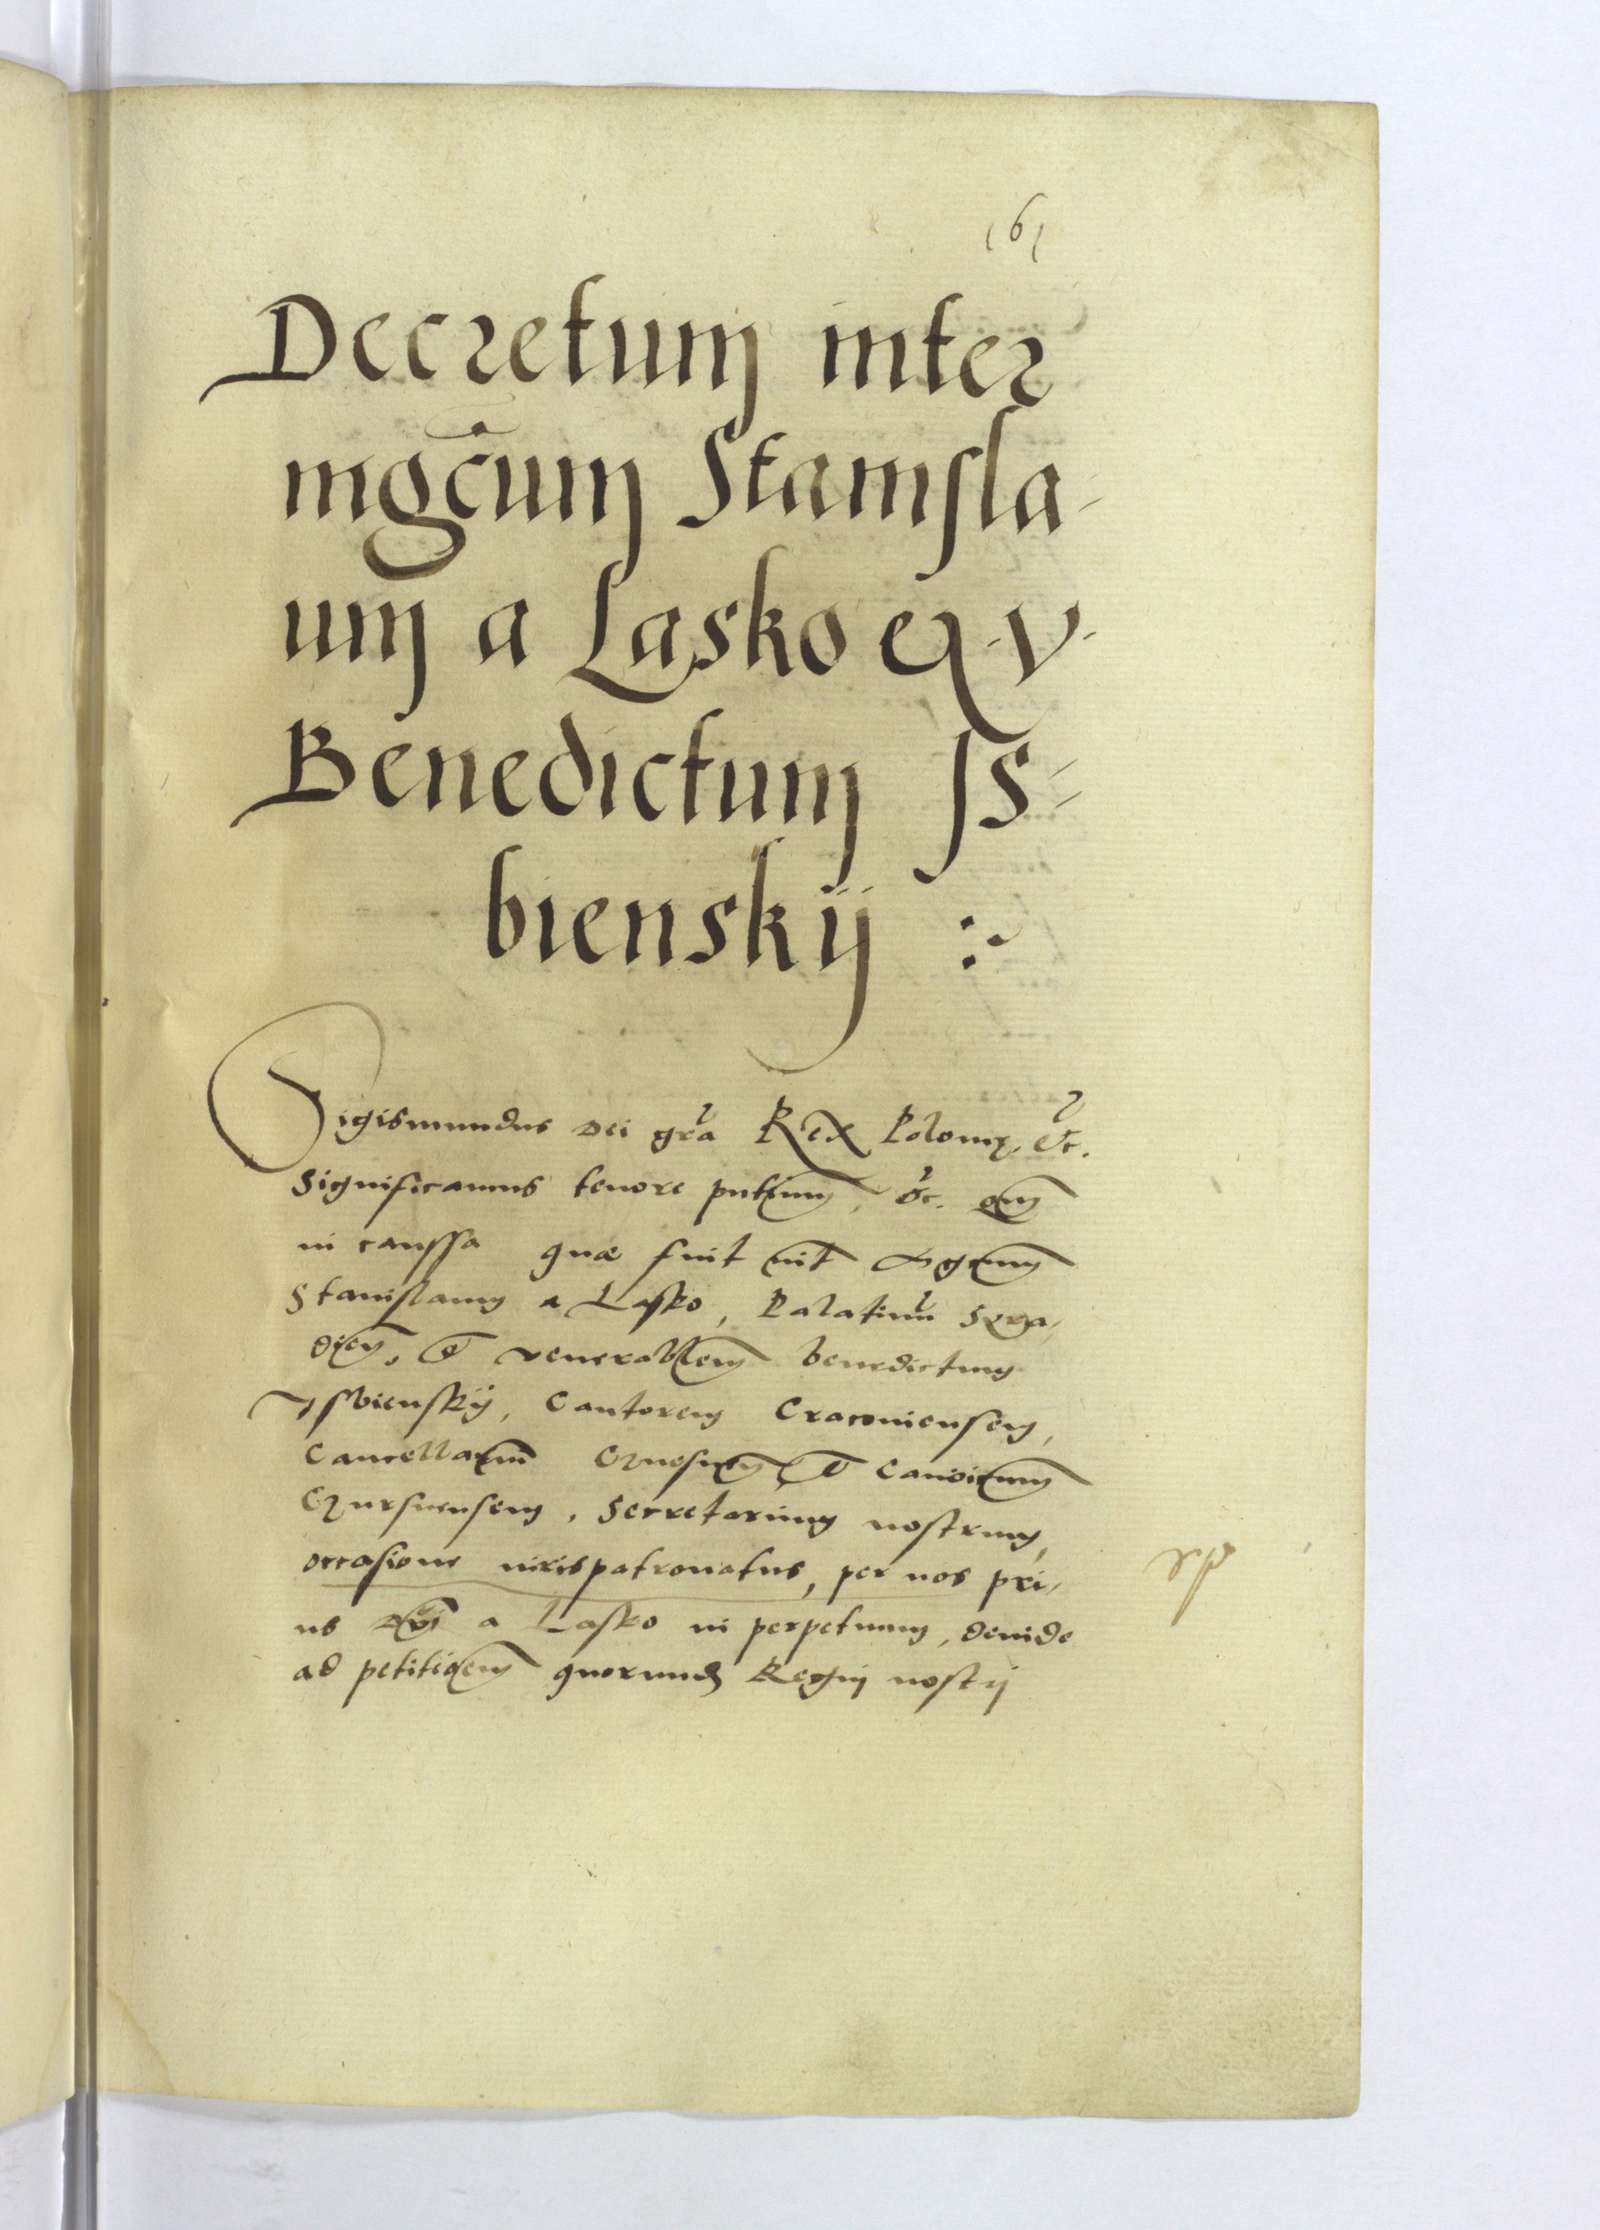 161
Decretum inter
mgcum Stanisla-
um a Lasko et v.
Benedictum Is-
bienskij
Sigismundus Dei gra Rex Polonię. etc.
Significamus tenore pntium, etc. qm
in caussa quae fuit int Mgcum
Stanislaum a Lasko, Palatinu Syra-
dien, et venerablem benedictum
Isbienskij, Cantorem Cracoviensem,
Cancellarium Gnesnen et canoicum
Gnesnensem, Secretarium nostrum,
occasione iurispatronatus, per nos pri-
us a Lasko in perpetuum, deinde
ad petitioem quorund Regni nostri